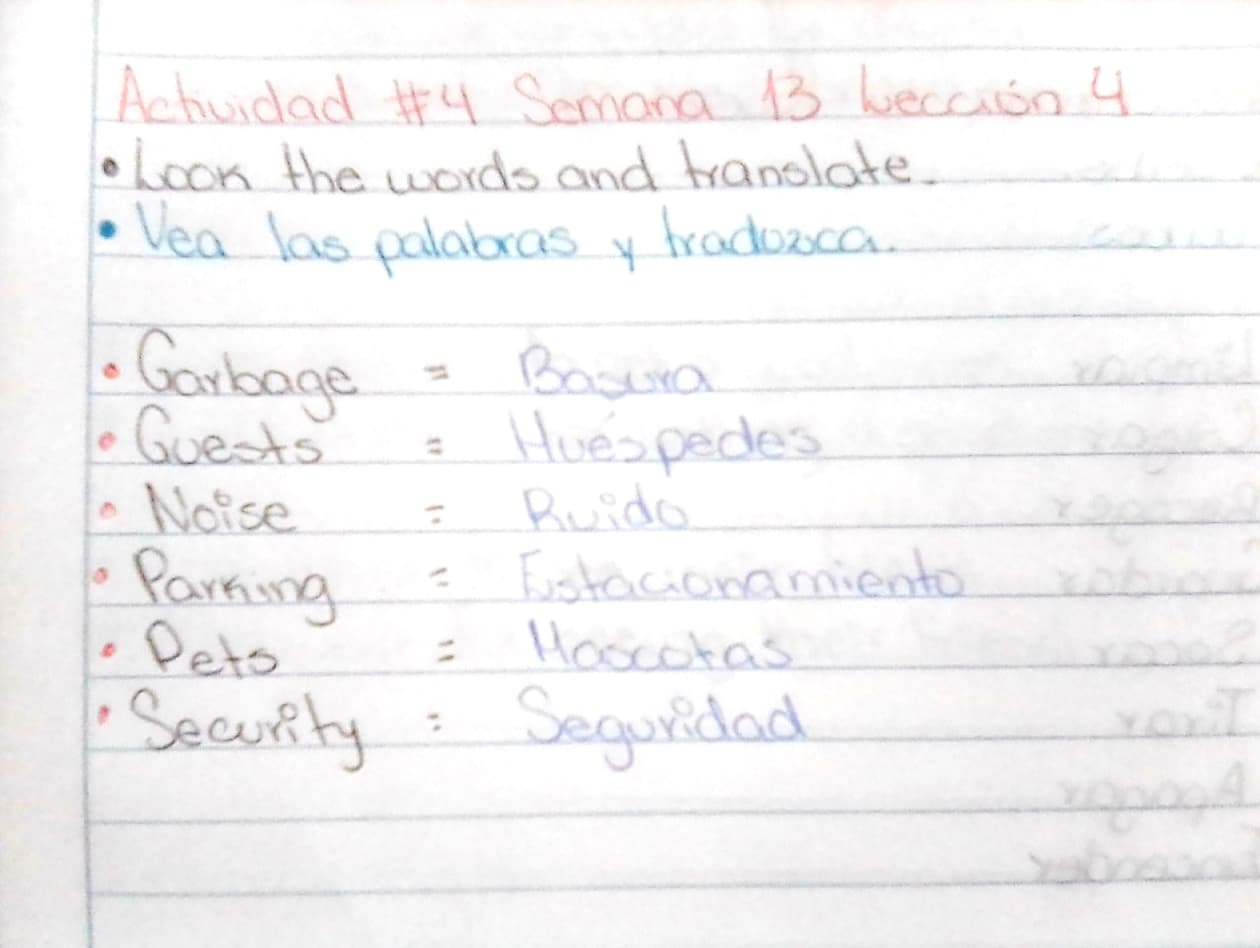 Actividad #4 Semana 13 Lección 4
• Look the words and translate.
• Vea las palabras y tradozca.
• Garbage = Basura
• Guests = Huéspedes
• Noise = Ruido
• Parking = Estacionamiento
• Pets = Mascotas
• Security = Seguridad